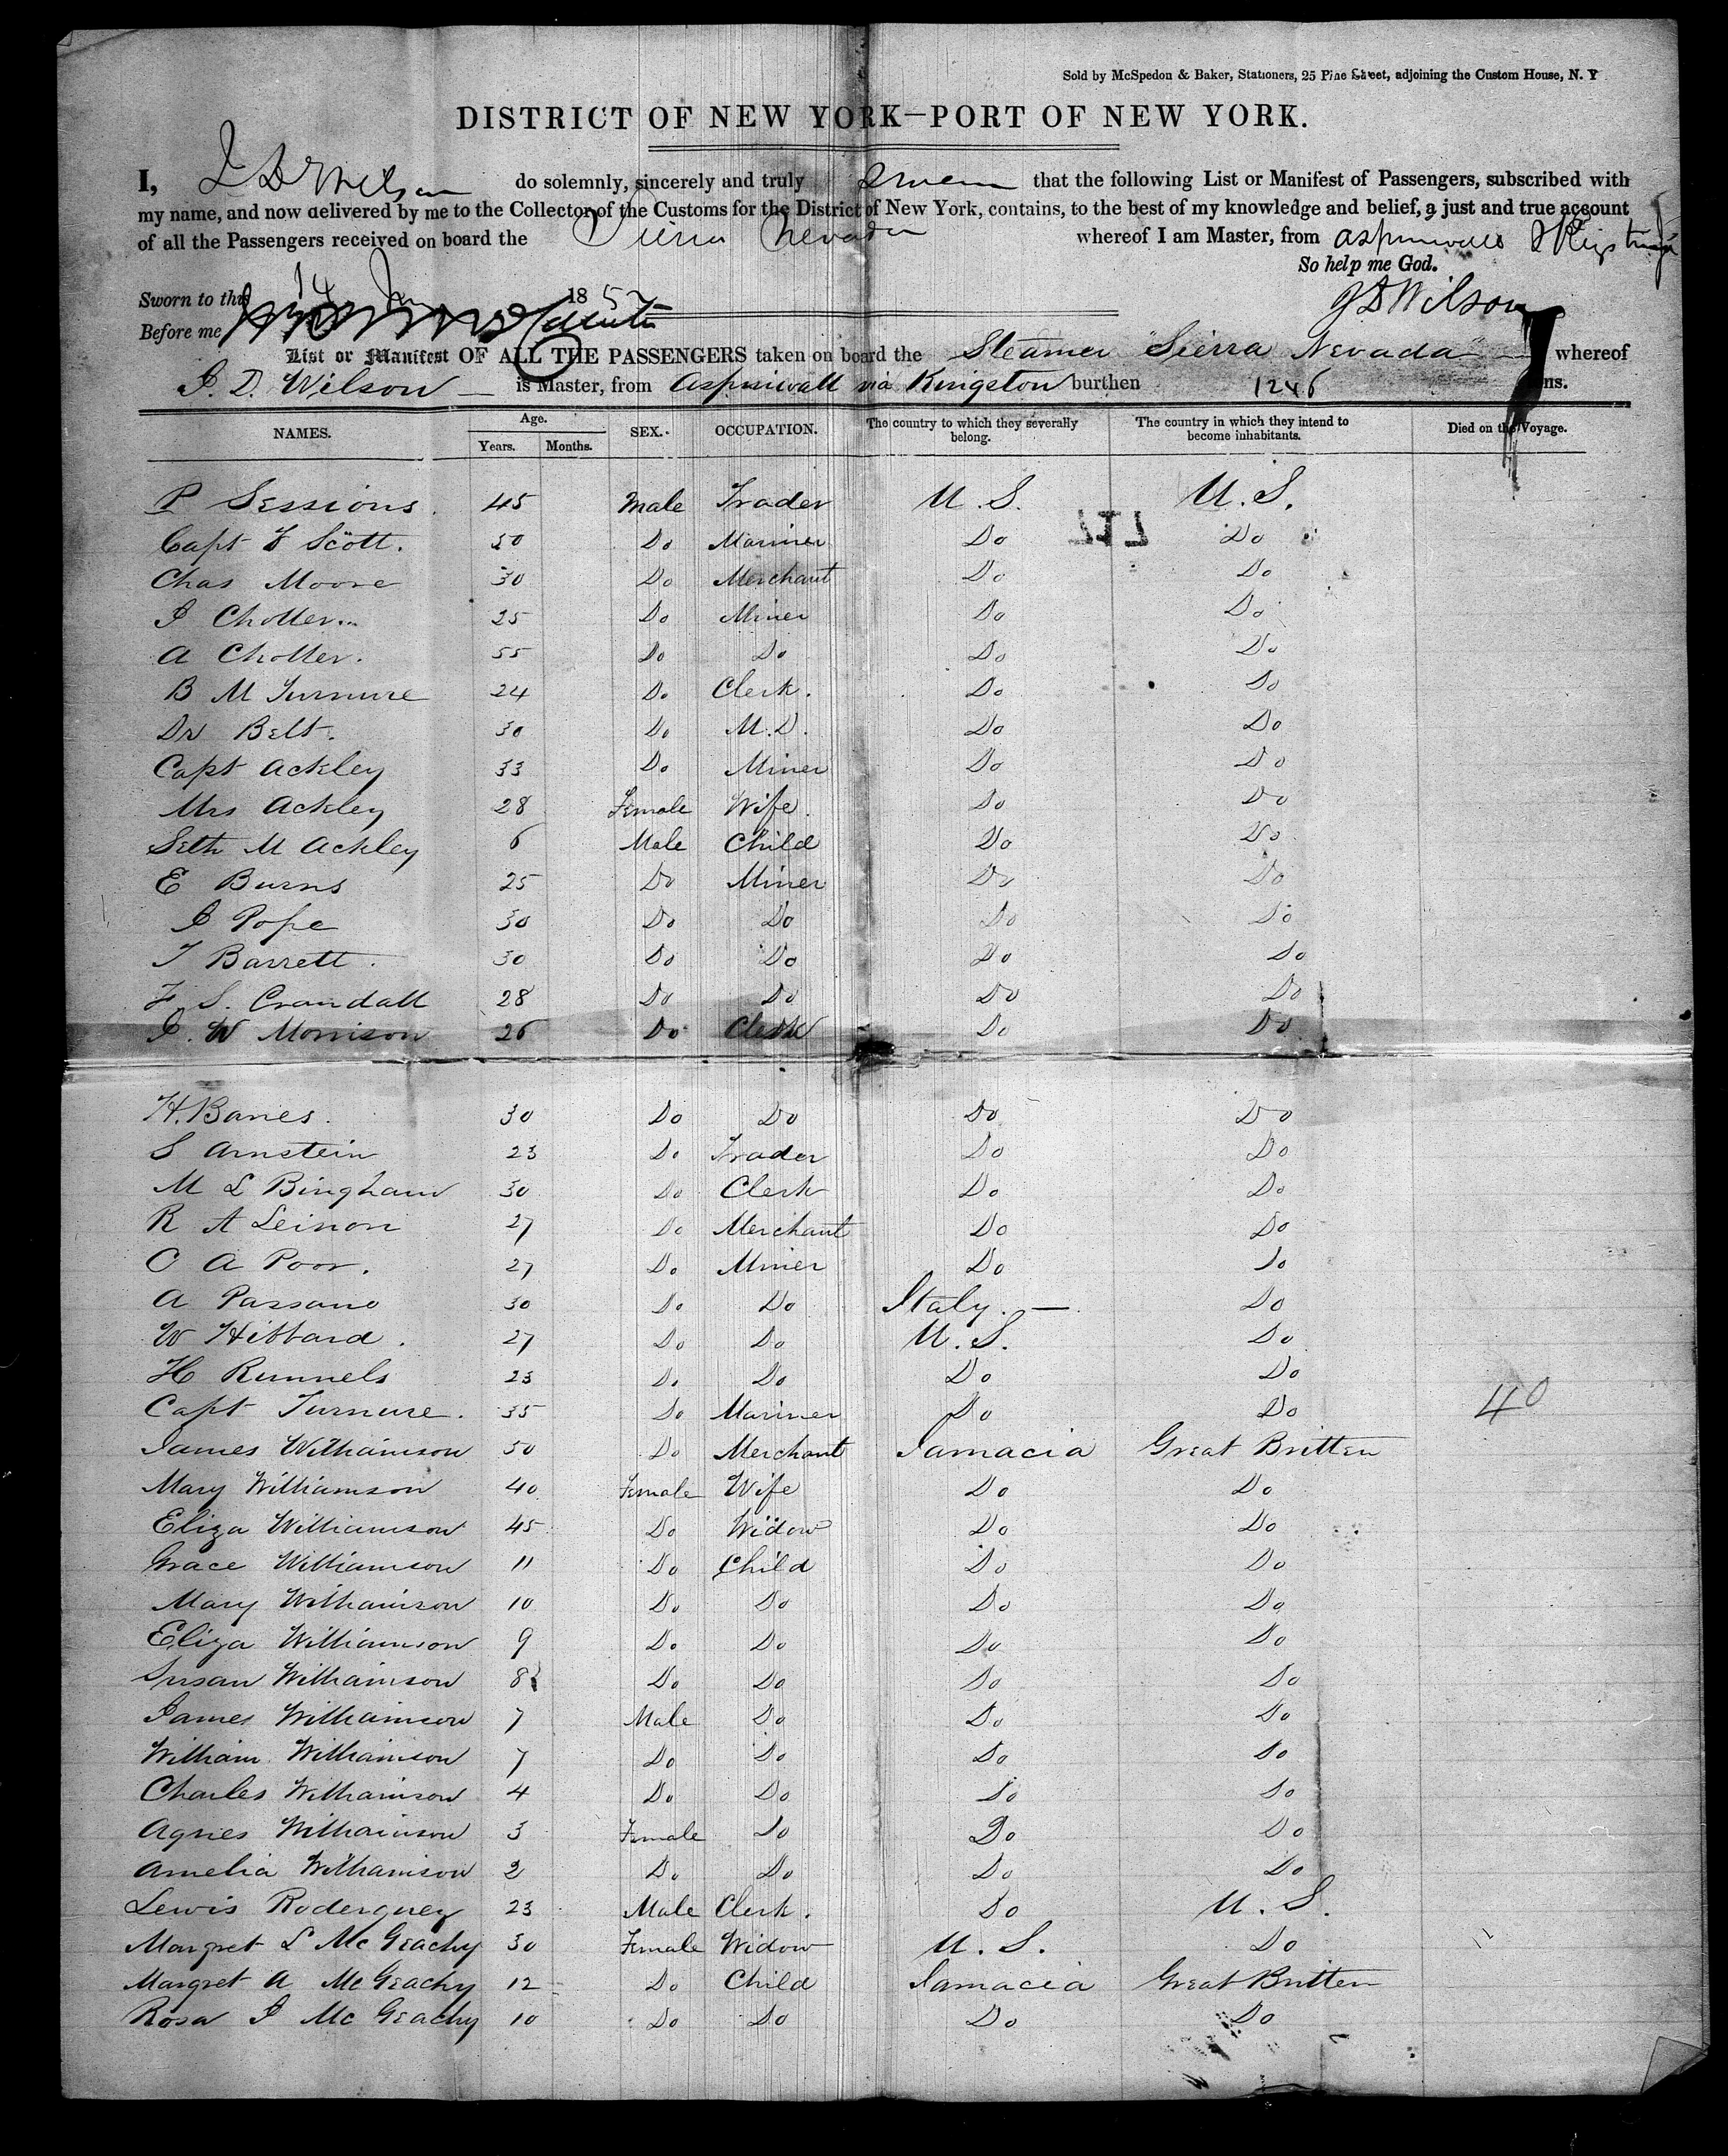 Sold by McSpedon & Baker, Stationers, 25 Pine Street, adjoining the Custom House, N. Y
DISTRICT OF NEW YORK—PORT OF NEW YORK.
I, J D Wilson do solemnly, sincerely and truly swear that the following List or Manifest of Passengers, subscribed with
my name, and now delivered by me to the Collector of the Customs for the District of New York, contains, to the best of my knowledge and belief, a just and true account
of all the Passengers received on board the Sierra Nevada whereof I am Master, from Aspinwall & Kingston
So help me God.
Sworn to this 14 Jan 185 J D Wilson
Before me
List or Manifest OF ALL THE PASSENGERS taken on board the Steamer "Sierra Nevada" whereof
J. D. Wilson is Master, from Aspinwall via Kingston burthen 1246 tons.
NAMES. Age. Years. Months. SEX. OCCUPATION. The country to which they severally belong. The country in which they intend to become inhabitants. Died on the Voyage.
P Sessions. 45 Male Trader U.S. U.S.
Capt F Scott. 50 Do Mariner Do Do
Chas Moore 30 Do Merchant Do Do
J Choller 25 Do Miner Do Do
A Choller. 55 Do Do Do Do
B M Turnure 24 Do Clerk. Do Do
Dr Belt. 30 Do M.D. Do Do
Capt Ackley 33 Do Miner Do Do
Mrs Ackley 28 Female Wife. Do Do
Seth M Ackley 6 Male Child Do Do
E Burns 25 Do Miner Do Do
J Pope 30 Do Do Do Do
T Barrett. 30 Do Do Do Do
F S. Crandall 28 Do Do Do Do
J. W Morrison 26 Do Clerk Do Do
H. Banes. 30 Do Do Do Do
S Arnstein 23 Do Trader Do Do
M L Bingham 30 Do Clerk Do Do
R A Leinon 27 Do Merchant Do Do
O A Poor. 27 Do Miner Do Do
A Passano 30 Do Do Italy. — Do
W Hibbard. 27 Do Do U.S. Do
H Runnels 23 Do Do Do Do
Capt Turnure. 35 Do Mariner Do Do 40
James Williamson 50 Do Merchant Jamacia Great Britten
Mary Williamson 40 Female Wife Do Do
Eliza Williamson 45 Do Widow Do Do
Grace Williamson 11 Do Child Do Do
Mary Williamson 10 Do Do Do Do
Eliza Williamson 9 Do Do Do Do
Susan Williamson 8 Do Do Do Do
James Williamson 7 Male Do Do Do
William Williamson 7 Do Do Do Do
Charles Williamson 4 Do Do Do Do
Agnes Williamson 3 Female Do Do Do
Amelia Williamson 2 Do Do Do Do
Lewis Roderguez 23 Male Clerk. Do U.S.
Margret L McGeachy 30 Female Widow U.S. Do
Margret A McGeachy 12 Do Child Jamacia Great Britten
Rosa J McGeachy 10 Do Do Do Do